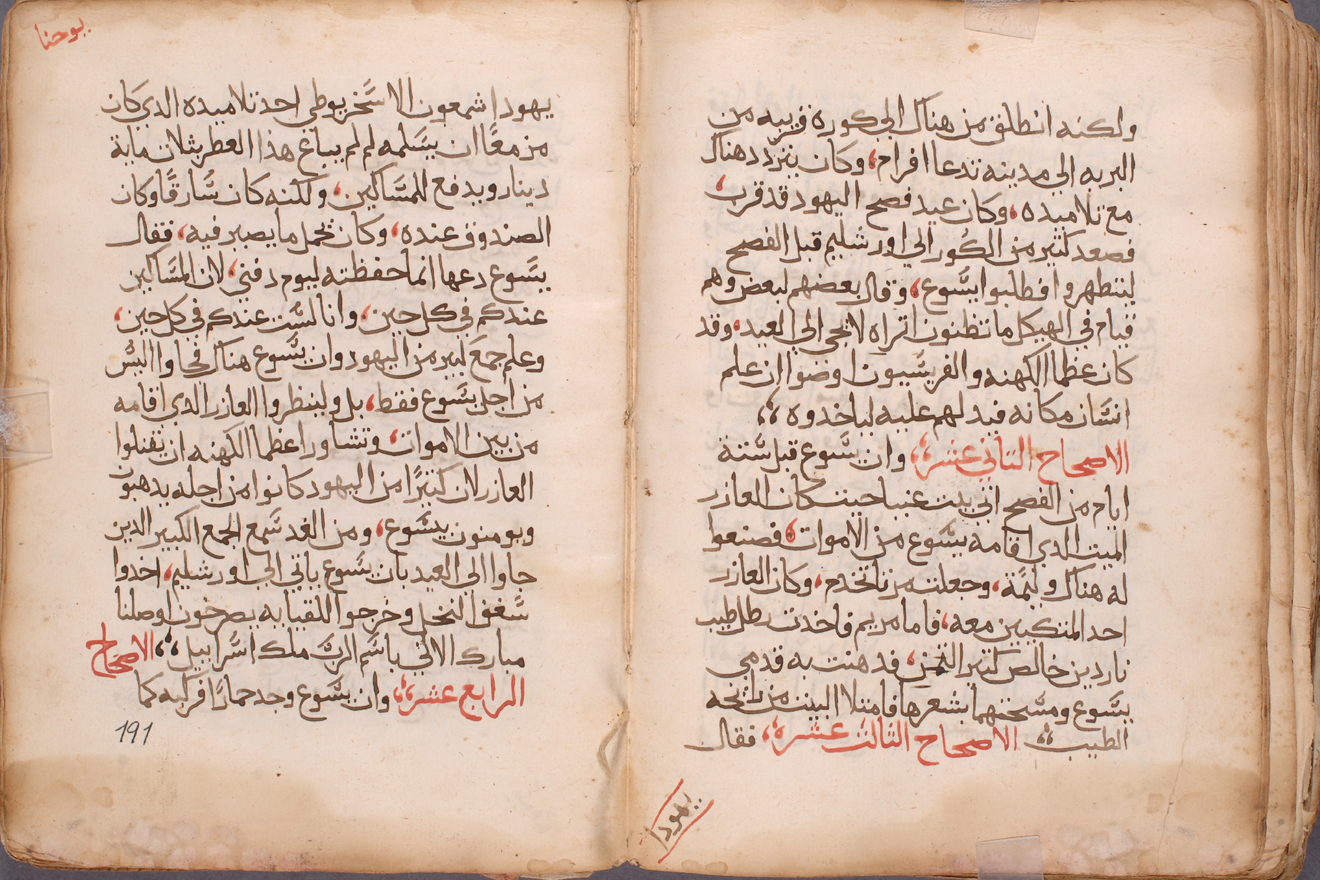 ولكنه انطلق من هناك الى كوره قريبه من
البريه الى مدينه تدعا افرام، وكان يتردد هناك
مع تلاميده، وكان عيد فصح اليهود قد قرب،
فصعد كثير من الكُور الي اورشليم قبل الفصح
ليتطهروا فطلبوا يسوع، وقال بعضهم لبعض وهم
قيام في الهيكل ما تظنون اتراه لا يجي الي العيد، وقد
كان عظما الكهنه والفريسيون اوصوا ان علم
انسان مكانه فيدلهم عليه لياخدوه،،
الاصحاح التاني عشر،، وان يسوع قبل ستة
ايام من الفصح اتي بيت عنيا حيت كان العازر
الميت الدي اقامه يسوع من الاموات، فصنعوا
له هناك وليمة، وجعلت مرتا تخدم، وكان العازر
احد المتكيين معه، فاما مريم فاخدت رطل طيب
ناردين خالص كتير التمن، فدهنت به قدمي
يسوع ومسحتهما بشعرها فامتلا البيت من رايحه
الطيب،، الاصحاح التالت عشر،، فقال
يهودا
يوحنا
يهودا شمعون الاسخريوطي احد تلاميده الدي كان
مزمعًا ان يسلمه لم لم يباع هذا العطر بثلاث ماية
دينار ويدفع للمساكين، ولكنه كان سارقًا وكان
الصندوق عنده، وكان يحمل ما يصير فيه، فقال
يسوع دعها انما حفظته ليوم دفني، لان المساكين
عندكم في كل حين، وانا لست عندكم في كل حين،
وعلم جمع كبير من اليهود وان يسوع هناك فجاوا اليس
من اجل يسوع فقط، بل ولينظروا العازر الدي اقامه
من بين الاموات، وتشاوروا عظما الكهنه ان تقتلوا
العازر لان كتيرًا من اليهود كانوا من اجله يدهبون
ويومنون بيسوع، ومن الغد سمع الجمع الكبير الدين
جاوا الى العيد بان يسوع ياتي الى اورشليم، اخدوا
سعف النخل وخرجوا للقيا به يصرخون اوصلنا
مبارك الاتي باسم الرب ملك اسراييل،، الاصحاح
الرابع عشر،، وان يسوع وجد حمارًا فركبه كما
191